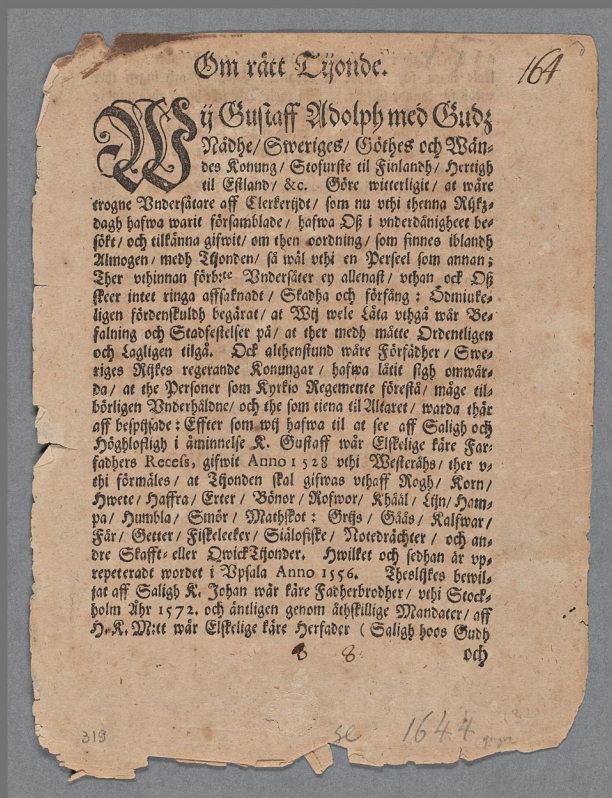 Om rätt Tijonde.
164
Wij Gustaff Adolph med Gudz
Nådhe/ Sweriges/ Göthes och Wän-
des Konung/ Stofurste til Finlandh/ Hertigh
til Estland/ &c. Göre witterligit/ at wåre
trogne Vndersåtare aff Clerkerijdt/ som nu vthi thenna Rijkz-
dagh hafwa warit församblade/ hafwa Oß i vnderdånigheet be-
sökt/ och tilkänna gifwit/ om then oordning/ som finnes iblandh
Almogen/ medh Tijonden/ så wäl vthi en Perseel som annan;
Ther vthinnan förb:te Vndersåter ey allenast/ vthan ock Oß
skeer intet ringa affsaknadt/ Skadha och förfång: Ödmiuke-
ligen fördenskuldh begärat/ at Wij wele Låta vthgå wår Be-
falning och Stadfestelser på/ at ther medh måtte Ordentligen
och Lagligen tilgå. Ock althenstund wåre Förfädher/ Swe-
riges Rijkes regerande Konungar/ hafwa låtit sigh omwår-
da/ at the Personer som Kyrkio Regemente förestå/ måge til-
börligen Vnderhåldne/ och the som tiena til Altaret/ warda thär
aff bespijsade: Effter som wij hafwa til at see aff Saligh och
Höghlofligh i åminnelse K. Gustaff wår Elskelige käre Far-
fadhers Recess, gifwit Anno 1528 vthi Westeråhs/ ther v-
thi förmåles/ at Tijonden skal gifwas vthaff Rogh/ Korn/
Hwete/ Haffra/ Erter/ Bönor/ Rofwor/ Khååł/ Lijn/ Ham-
pa/ Humbla/ Smör/ Mathskot: Grijs/ Gåås/ Kalfwar/
Får/ Getter/ Fiskeleeker/ Siälofiske/ Notedrächter/ och an-
dre Skafft- eller QwickTijonder. Hwilket och sedhan är vp-
repeteradt wordet i Vpsala Anno 1556. Theslijkes bewil-
jat aff Saligh K. Johan wår käre Fadherbrodher/ vthi Stock-
holm Åhr 1572. och äntligen genom åthskillige Mandater/ aff
H. K. M:tt wår Elskelige käre Herfader ( Saligh hoos Gudh
8 8 och
319
se 1644